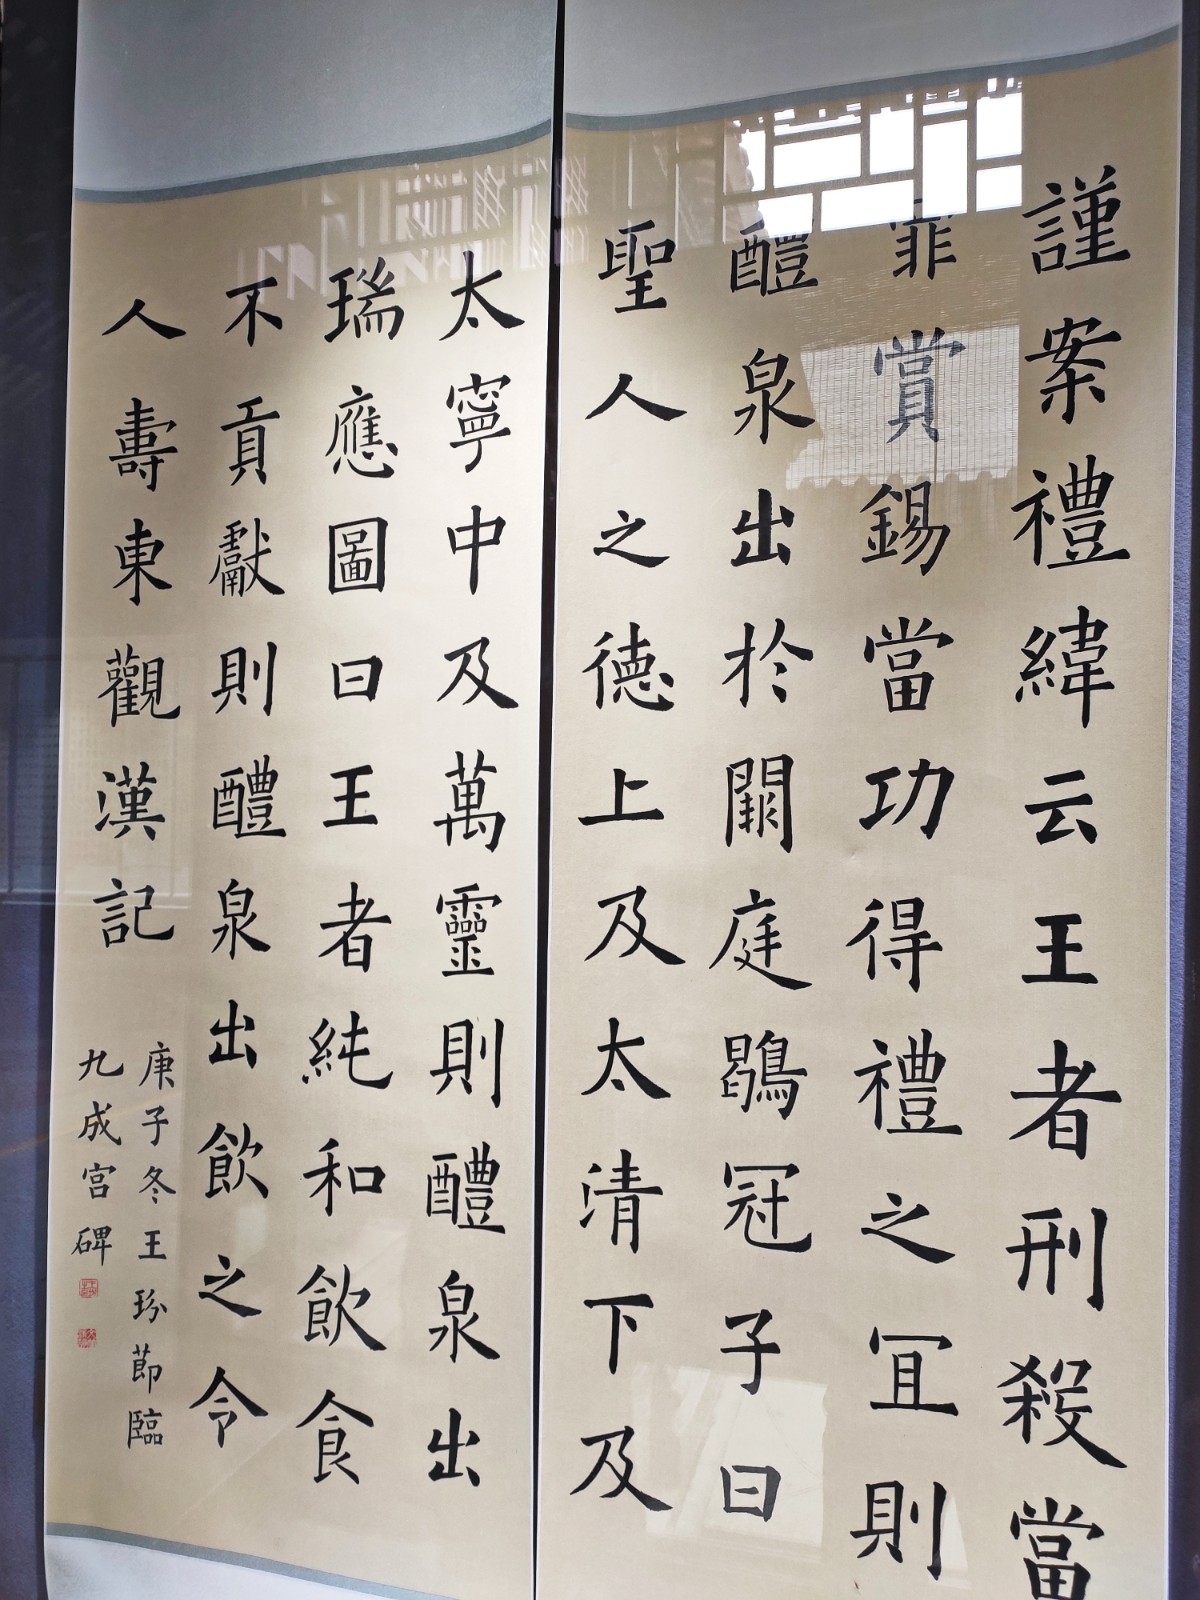 謹案禮緯云王者刑殺當
罪賞錫當功得禮之宜則
醴泉出於闕庭鶡冠子曰
聖人之德上及太清下及
太寧中及萬靈則醴泉出
瑞應圖曰王者純和飲食
不貢獻則醴泉出飲之令
人壽東觀漢記
庚子冬王玢節臨
九成宮碑